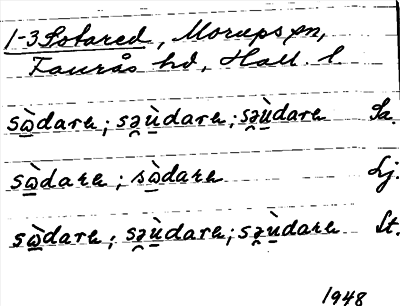 1-3 Sotared, Morups sn,
Faurås hd, Hall. l.
sὼ̲darɐ; sə̯ù̲darɐ; sə̯ù̲darɐ Sa.
sὼ̲darɐ; sò̲darɐ Lj.
sὼ̲darɐ; sə̯ù̲darɐ; sə̯ù̲darɐ St.
1948